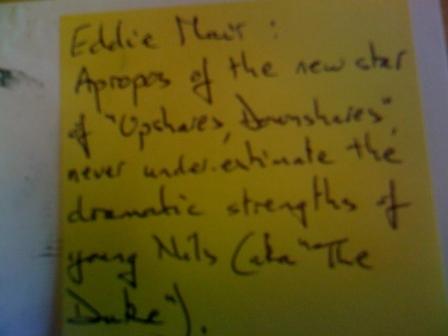 Eddie Mair :
Apropos of the new star
of "Upshares, Downshares",
never underestimate the
dramatic strengths of
young Nils (aka "The
Duke").